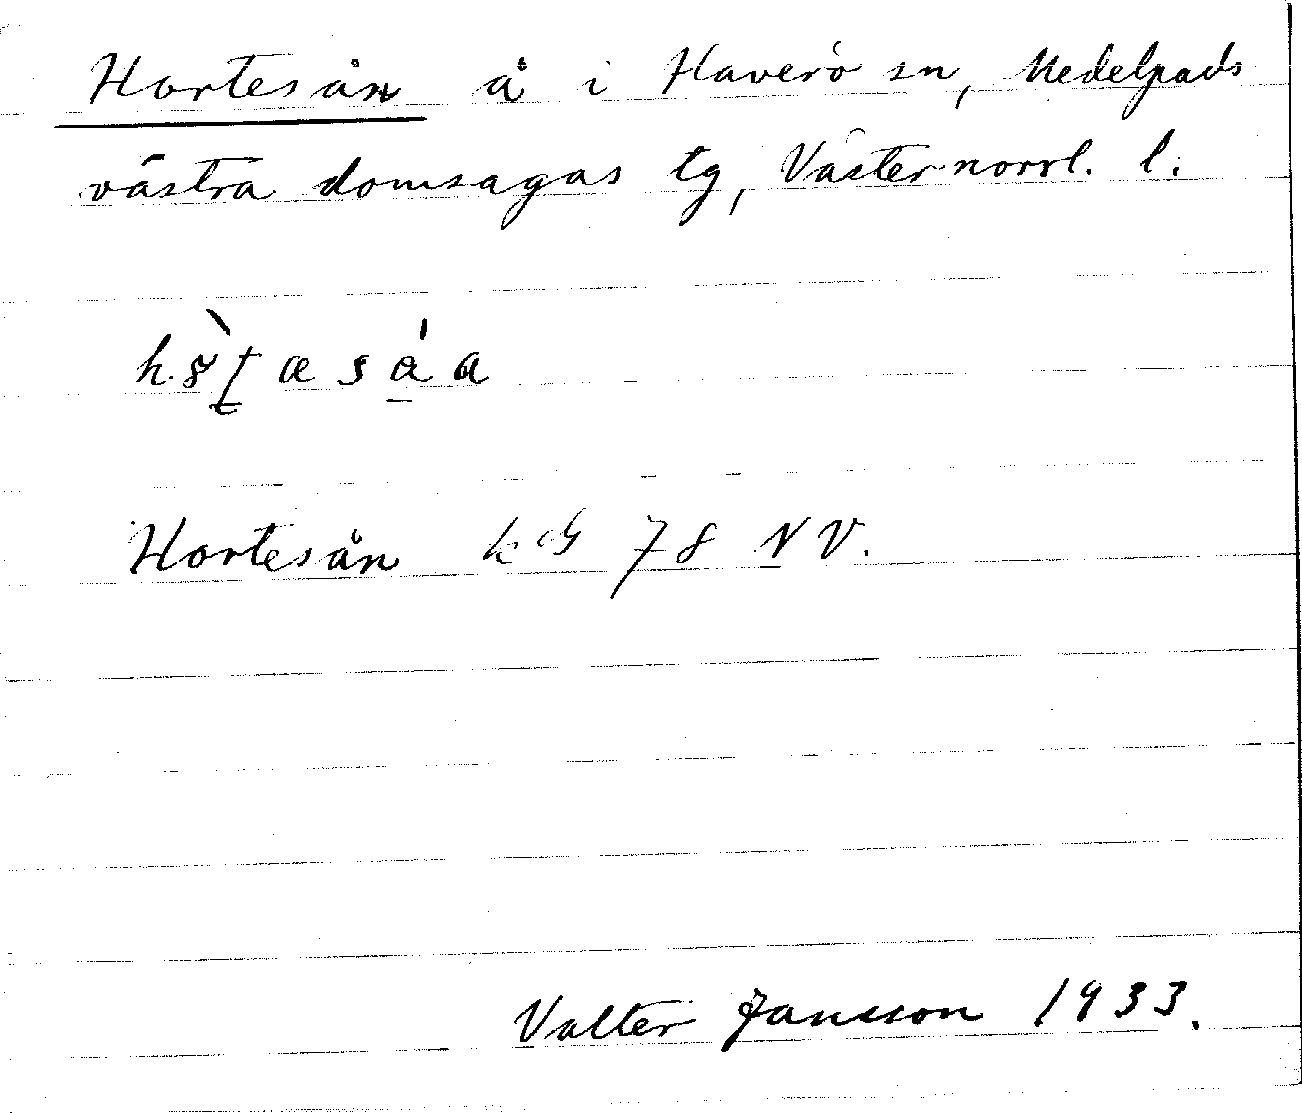 Hortesån å i Haverö sn, Medelpads
västra domsagas tg, Västernorrl. l.
Hortesån 78 NV.
Valter Jansson 1933.